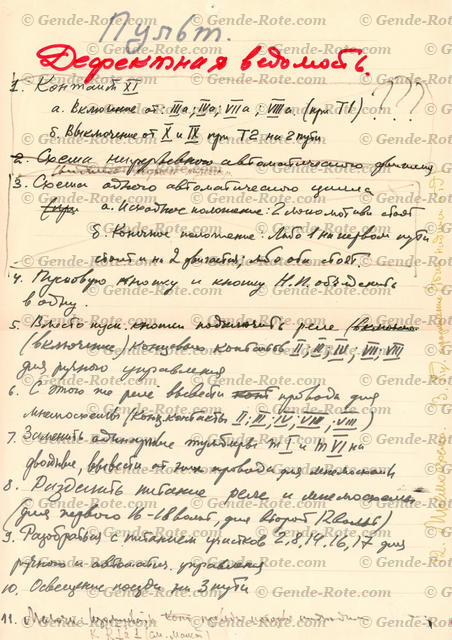 Пульт.
Дефектная ведомость.
1. Контакт XI
а. Включение от: IIIa; IVa; VIIa; VIIIa (при Т1) ???
б. Выключение от X и IX при Т2 на 2 пути
2. Схема непрерывного автоматического движения
3. Схема одного автоматического цикла
а. Исходное положение: 2 локомотива стоят
б. Конечное положение: либо 1 на первом пути
стоит и на 2 движется; либо оба стоят.
4. Пусковую кнопку и кнопку Н.П. объединить
в одну.
5. Вместо пуск. кнопки подключить реле
(включение) концевых контактов II; III; IV; VII; VIII
для ручного управления
6. С того же реле вывести провода для
мнемосхемы (конц. контакты II; III; IV; VII; VIII)
7. Заменить одинарные тумблеры т I и т VI на
двойные, вывести от них провода для мнемосхемы
8. Разделить питание реле и мнемосхемы
(для первого 16-18 вольт, для второй 12 вольт)
9. Разобраться с питанием участков 2,8,14,16,17 для
ручного и автоматич. управления
10. Освещение позади на 3 пути
11.
12. Мнемосхема.
© Gende-Rote.com